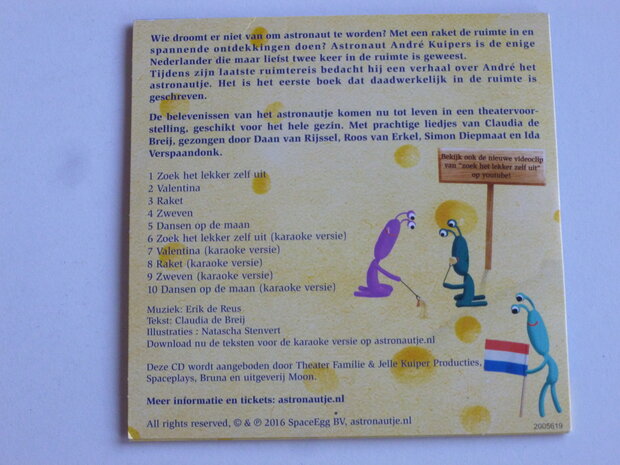 Wie droomt er niet van om astronaut te worden? Met een raket de ruimte in en
spannende ontdekkingen doen? Astronaut André Kuipers is de enige
Nederlander die maar liefst twee keer in de ruimte is geweest.
Tijdens zijn laatste ruimtereis bedacht hij een verhaal over André het
astronautje. Het is het eerste boek dat daadwerkelijk in de ruimte is
geschreven.
De belevenissen van het astronautje komen nu tot leven in een theatervoor-
stelling, geschikt voor het hele gezin. Met prachtige liedjes van Claudia de
Breij, gezongen door Daan van Rijssel, Roos van Erkel, Simon Diepmaat en Ida
Verspaandonk.
Bekijk ook de nieuwe videoclip
van "zoek het lekker zelf uit"
op youtube!
1 Zoek het lekker zelf uit
2 Valentina
3 Raket
4 Zweven
5 Dansen op de maan
6 Zoek het lekker zelf uit (karaoke versie)
7 Valentina (karaoke versie)
8 Raket (karaoke versie)
9 Zweven (karaoke versie)
10 Dansen op de maan (karaoke versie)
Muziek: Erik de Reus
Tekst: Claudia de Breij
Illustraties : Natascha Stenvert
Download nu de teksten voor de karaoke versie op astronautje.nl
Deze CD wordt aangeboden door Theater Familie & Jelle Kuiper Producties,
Spaceplays, Bruna en uitgeverij Moon.
Meer informatie en tickets: astronautje.nl
All rights reserved, © & ℗ 2016 SpaceEgg BV, astronautje.nl
2005619